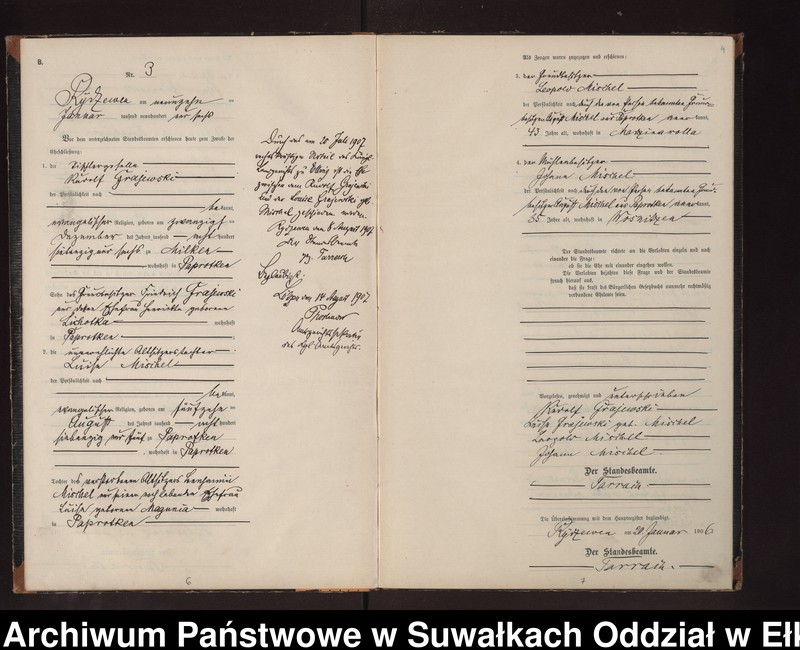 B.
Nr. 3
Rydzewen am neunzehn ten
Januar tausend neunhundert und sechs
Vor dem unterzeichneten Standesbeamten erschienen heute zum Zwecke der
Eheschließung:
1. der Tischlergeselle
Rudolf Grajewski
der Persönlichkeit nach
be kannt,
evangelischer Religion, geboren am zwanzigsten
Dezember des Jahres tausend acht hundert
siebenzig und sechs zu Milken
, wohnhaft in Paprotken
Sohn des Grundbesitzers Friedrich Grajewski
und dessen Ehefrau Henriette geborenen
wohnhaft
in Paprotken
2. die unverehelichte Altsitzerstochter
Luise Mischel
der Persönlichkeit nach
be kannt,
evangelischer Religion, geboren am fünfzehn ten
August des Jahres tausend acht hundert
siebenzig und fünf zu Paprotken
, wohnhaft in Paprotken
Tochter des verstorbenen Altsitzers Benjamin
Mischel und seiner noch lebenden Ehefrau
Luise geborenen Magunia wohnhaft
in Paprotken
Durch das am 20 Juli 1907
rechtskräftige Urteil des Königl.
Landgerichts zu ist die Ehe
zwischen dem Rudolf Grajewski
und der Louise Grajewski geb.
Mischel geschieden worden.
Rydzewen am 8 August 1907
Der Standesbeamte
Tarrach
Beglaubigt:
Lötzen den 14 August 1907
Amtsgerichtssekretär
des Kgl. Amtsgerichts.
6
4
Als Zeugen waren zugezogen und erschienen:
3. der Grundbesitzer
Leopold Mischel
der Persönlichkeit nach
43 Jahre alt, wohnhaft in Marcinawolla
4. der Mühlenbesitzer
Johann Mischel
der Persönlichkeit nach
55 Jahre alt, wohnhaft in Wosnitzen
Der Standesbeamte richtete an die Verlobten einzeln und nach
einander die Frage:
ob sie die Ehe mit einander eingehen wollen.
Die Verlobten bejahten diese Frage und der Standesbeamte
sprach hierauf aus,
daß sie kraft des Bürgerlichen Gesetzbuchs nunmehr rechtmäßig
verbundene Eheleute seien.
Vorgelesen, genehmigt und unterschrieben
Rudolf Grajewski
Luise Grajewski geb. Mischel
Leopold Mischel
Johann Mischel
Der Standesbeamte.
Tarrach
Die Übereinstimmung mit dem Hauptregister beglaubigt.
Rydzewen am 20 Januar 1906
Der Standesbeamte.
Tarrach.
7
Archiwum Państwowe w Suwałkach Oddział w Ełk